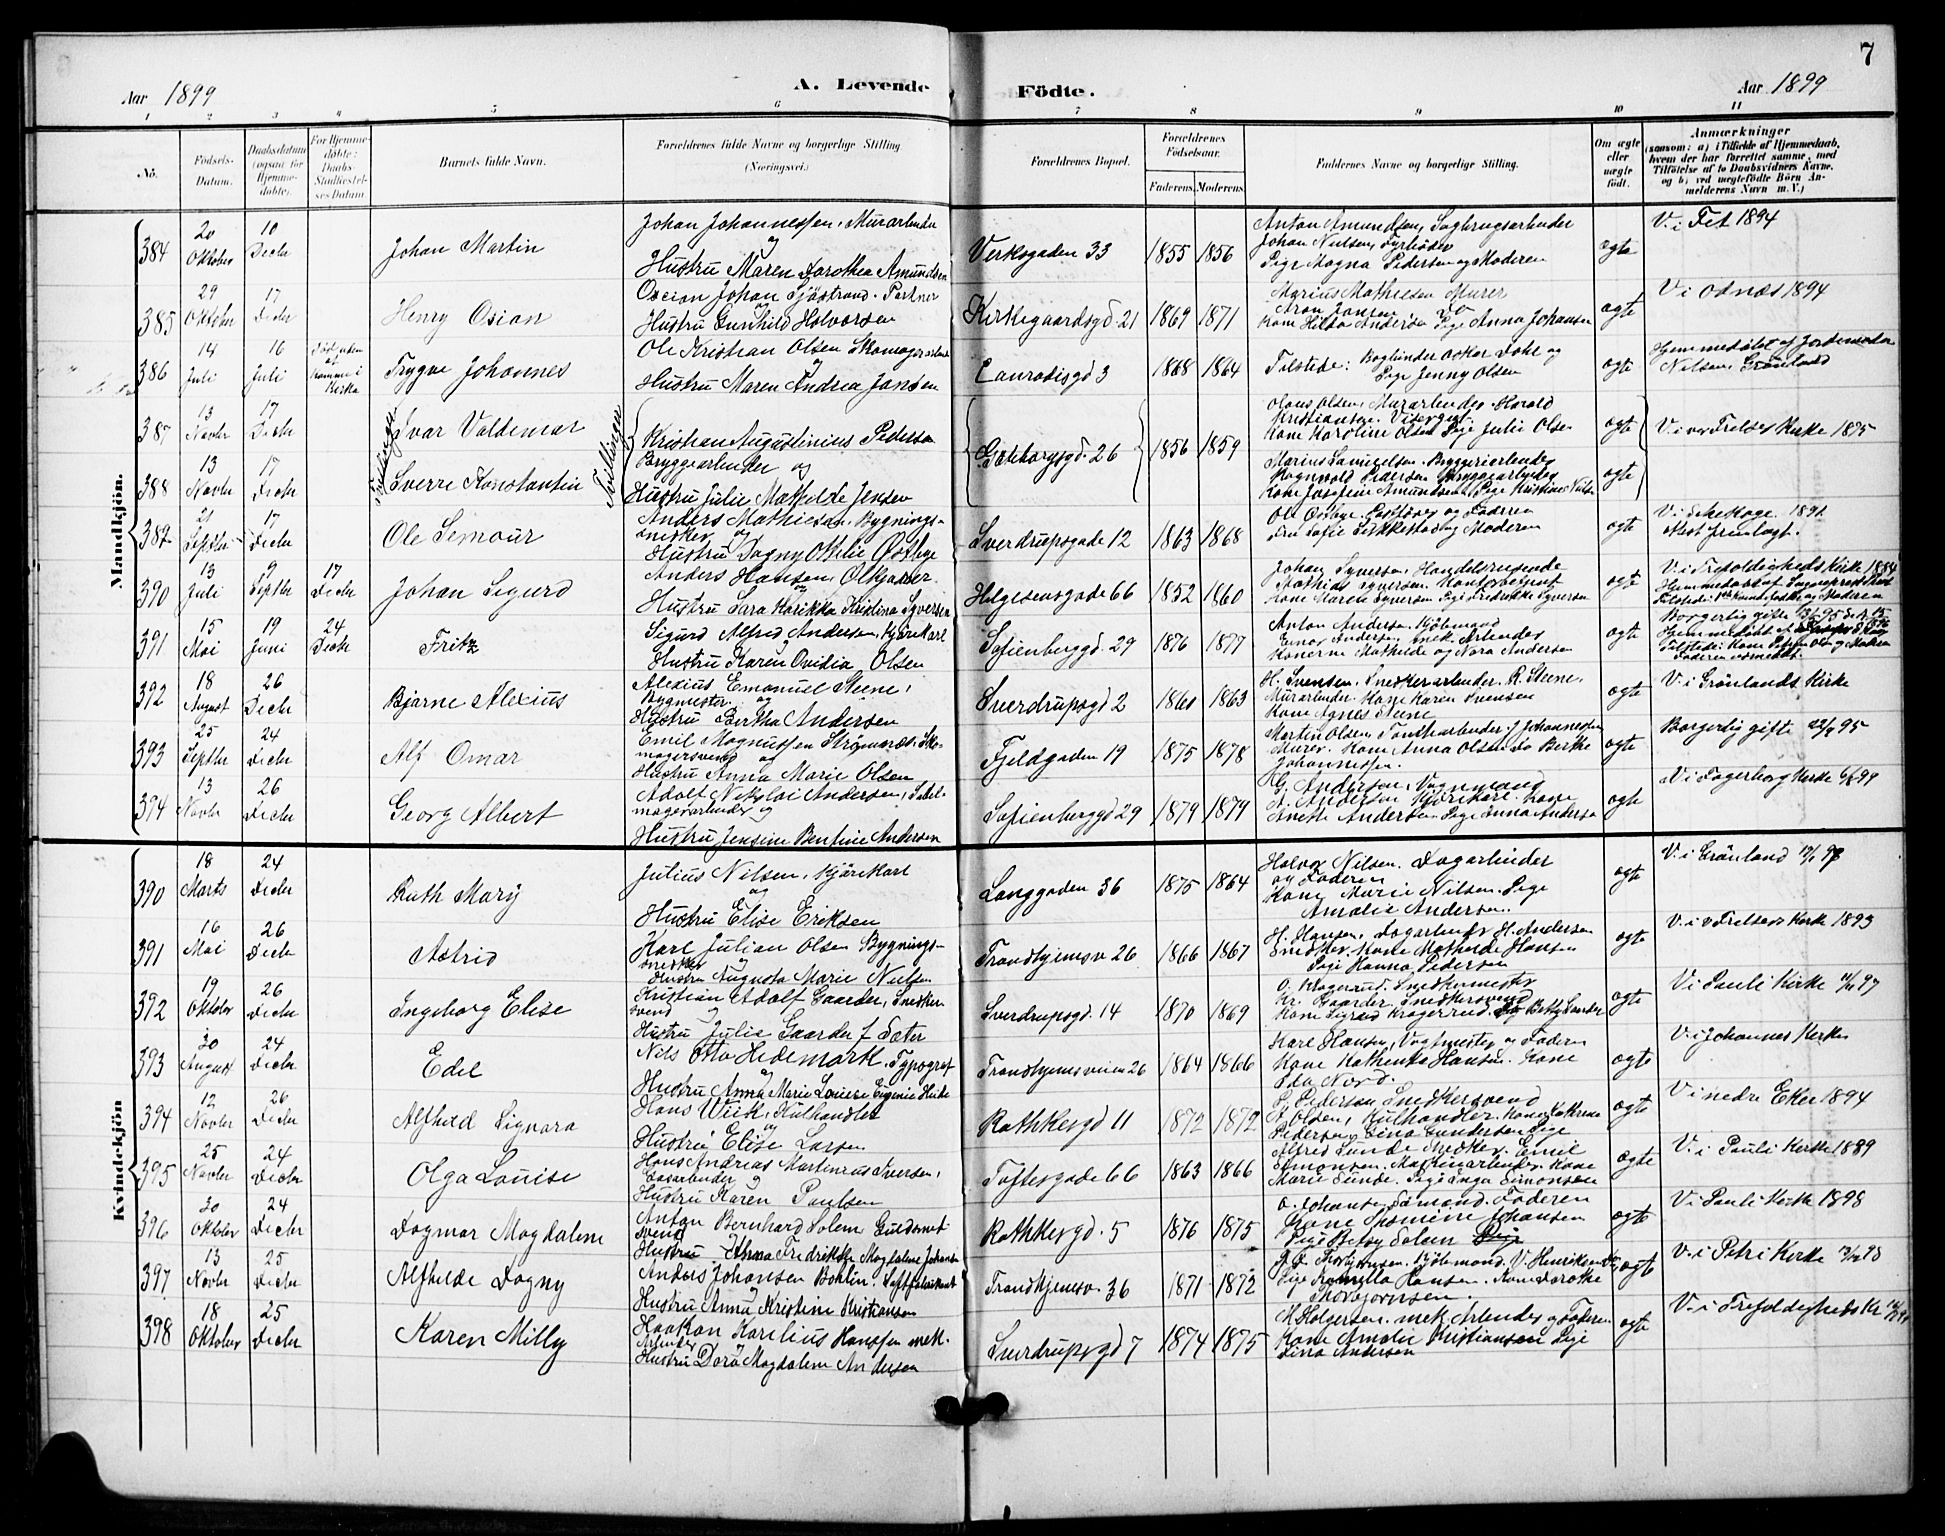 7
Aar 1899
A. Levende Födte.
Aar 1899
1 2 3 4 5 6 7 8 9 10 11
No.
Födsels-Datum.
Daabsdatum (ogsaa for Hjemme-döbte).
For Hjemme-döbte: Daabs-Stadfæstel-ses-Datum.
Barnets fulde Navn.
Forældrenes fulde Navne og borgerlige Stilling (Næringsvei.)
Forældrenes Bopæl.
Forældrenes Födselsaar.
Faderens. Moderens.
Faddernes Navne og borgerlige Stilling.
Om ægte eller uægte födt.
Anmærkninger
(saasom: a) i Tilfælde af Hjemmedaab, hvem der har forrettet samme, med Tilföielse af to Daabsvidners Navne, og b) ved uegtefödte Börn An-melderens Navn m. V.)
Mandkjön.
384 20 Oktober 10 Decbr Johan Martin
Johan Johannessen, Murarbeider
og
Hustru Maren Dorothea Amundsen
Verksgaden 33 1855 1856
Anton Amundsen, Sagbrugsarbeider
Johan Nielsen, Fyrböder
Pige Magna Pedersen og Moderen
ægte V. i Fet 1894
385 29 Oktober 17 Decbr Henry Osian
Oscian Johan Sjöstrand. Portner
og
Hustru Gunhild Halvorsen
Kirkegaardsgd. 21 1869 1871
Marius Mathiesen Murer
Aron Jansen do
Kone Hilda Andersen Pige Anna Johansen
ægte V. i Odnæs 1894
386 14 Juli 16 Juli Trygve Johannes
Ole Kristian Olsen Skomagerarbeider
og
Hustru Maren Andrea Jansen
Lauradsgd 3 1868 1864
Tilstede: Bogbinder Oskar Dohl og
Pige Jenny Olsen
ægte Hjemmedöbt af Jordemoder
Nilsen, Grönland
387 13 Novbr 17 Decbr Ivar Valdemar
388 13 Novbr 17 Decbr Sverre Konstantin
Tvillinger
Kristian Augustinius Pedersen
Bryggearbeider og
Hustru Julie Mathilde Jensen
Göteborgsgd. 26 1856 1859
Hans Olsen, Murarbeider. Harald
Kristiansen. Visergut.
Kone Karoline Olsen Pige Julie Olsen
ægte V. i vor Frelsers Kirke 1875
Marius Samuelsen. Bryggeriarbeider
Ragnvald Pedersen Bryggearbeider
Kone Josefine Amundsen. Pige Kristine Nilsen
ægte
382 21 Septbr 17 Decbr Ole Semour
Anders Mathiesen. Bygnings-
snedker og
Hustru Dagny Othilie Östbye
Sverdrupsgade 12 1863 1868
Fru Sofie Sikkestad og Moderen
ægte
390 13 Juli 9 Septbr 17 Decbr Johan Sigurd
Anders Hansen, Ölkjörer
Hustru Sara Karikka Kristina Syversen
Helgesensgade 66 1852 1860
Johan Syversen Handelsreisende
Mathias Syversen. Kontorbetjent
Kone Maren Syversen Pige Fredrikke Syversen
ægte V. i Trefoldigheds Kirk 1884
391 15 Mai 19 Juni 24 Decbr Fritz
Sigurd Alfred Andersen, Kjörekarl
og
Hustru Karen Ovidia Olsen
Sofienberggd. 29 1876 1877
Anton Andersen Kjöbmand
Einar Andersen, mek. Arbeider
Konerne Mathilde og Nora Andersen
ægte
392 18 August 26 Decbr Bjarne Alexius
Alexius Emanuel Steene,
Bygmester. og
Hustru Bertha Andersen
Sverdrupsgd 2 1861 1863
H. Svensen. Snedkerarbeider. R. Steene,
Murarbeider Kone Karen Svensen
Kone Agnes Steene
ægte V. i Grönlands Kirke
393 25 Septbr 24 Decbr Alf Omar
Emil Magnussen Strömnæs. Sko-
magersvend og
Hustru Anna Marie Olsen
Fjeldgaden 19 1875 1878
Martin Olsen, Tomtearbeider. J. Johannessen
Murer. Kone Anna Olsen do Berthe
Johannessen.
ægte Borgerlig gifte 22/2 95
394 13 Novbr 26 Decbr Georg Albert
Adolf Nikolai Andersen, Sadel-
magerarbeider og
Hustru Jensine Bentine Andersen
Sofienberggd 29 1879 1879
G. Andersen, Vognmand
A. Andersen Kjörekarl. Kone
Anette Andersen Pige Anna Andersen
ægte V. i Fagerborg Kirke 6/8 99
Kvindekjön
390 18 Marts 24 Decbr Ruth Mary
Julius Nilsen, Kjörekarl
og
Hustru Elise Eriksen
Langgaden 36 1875 1864
Halvor Nilsen. Dagarbeider
og Faderen
Kone Marie Nilsen. Pige
Amalie Andersen.
ægte V. i Grönland
391 16 Mai 26 Decbr Astrid
Karl Julian Olsen Bygnings-
snedker og
Hustru Augusta Marie Nielsen
Trondhjemsv 26 1866 1867
H. Hansen, Dagarbeider H. Andersen
Snedker. Kone Mathilde Hansen
Pige Hanna Pedersen
ægte V. i v Frelsers Kirke 1893
392 19 Oktober 26 Decbr Ingeborg Elise
Kristian Adolf Gaarder, Snedker
svend og
Hustru Julie Gaarder f. Sæter
Sverdrupsgd. 14 1870 1869
O. Kragerud, Snedkermester
Kr. Gaarder. Snedkersvend
Kone Sigrid Kragerrud. Pig Betsy Gaarder
ægte V. i Pauli Kirke
393 30 August 24 Decbr Edel
Nils Otto Hedemark. Typograf
og
Hustru Anna Marie Louise Eugenie Hide
Trondhjemsveien 26 1864 1866
Karl Hansen, Vagtmester og Faderen
Kone Kathinka Hansen. Kone
Ida Nord.
ægte V. i Johannes Kirke
394 12 Novbr 26 Decbr Alfhild Signora
Hans Wiik, Kulhandler
og
Hustru Elise Larsen
Rathkesgd 11 1872 1872
P. Pedersen Snedkersvend
A. Olsen, Kulhandler. Kone Kathrine
Pedersen Lina Gundersen Pige
ægte V. i nedre Eker 1894
395 25 Novbr 24 Decbr Olga Louise
Hans Andreas Martinius Iversen,
Gasarbeider og
Hustru Karen Paulsen
Toftesgade 66 1863 1866
Alfred Sunde Snedker. Emil
Simonsen. Maskinarbeider. Kone
Marie Sunde. Pige Inga Simonsen
ægte V. i Pauli Kirke 1889
396 30 Oktober 24 Decbr Dagmar Magdalene
Anton Bernhard Solem Guldsmed
svend
Hustru Anna Fredrikke Magdalene Johansen
Rathkesgd. 5 1876 1875
O. Johansen Sömand. Faderen
Kone Thomine Johansen
Pige Betsy Solem
ægte V. i Pauli Kirke 1898
397 13 Novbr 25 Decbr Alfhilde Dagny
Anders Johansen Bohlin, Saftfabrikant
og
Hustru Anna Kristine Kristiansen
Trondhjemsv. 36 1871 1872
Thorbjörnsen. Kjöbmand. V. Henriksen do
Pige Kamilla Hansen. Kone Dorothe
Thorbjörnsen.
ægte V. i Petri Kirke
398 18 Oktober 25 Decbr Karen Milly
Haakon Karilius Hanssen mek.
Arbeider
Hustru Dora Magdalene Andersen
Sverdrupsgd 7 1874 1875
M. Holgersen. mek Arbeider og Faderen
Kone Amalie Kristiansen Pige
Lina Andersen
ægte V. i Trefoldigheds Kr